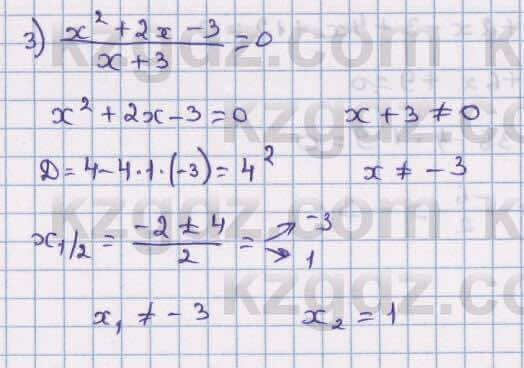 3) (x² + 2x - 3)/(x + 3) = 0
x² + 2x - 3 = 0 x + 3 ≠ 0
D = 4 - 4 · 1 · (-3) = 4² x ≠ -3
x₁/₂ = (-2 ± 4)/2 = -3
1
x₁ ≠ -3 x₂ = 1
kzgdz.com